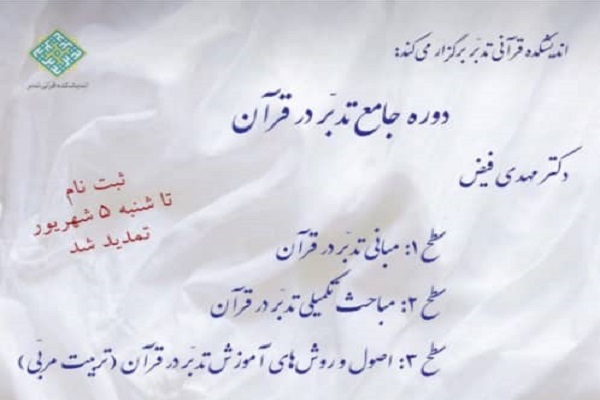 اندیشکده قرآنی تدبّر برگزار می‌کند:
اندیشکده قرآنی تدبر
دوره جامع تدبّر در قرآن
دکتر مهدی فیض
ثبت نام
تا شنبه ۵ شهریور
تمدید شد
سطح ۱: مبانی تدبّر در قرآن
سطح ۲: مباحث تکمیلی تدبّر در قرآن
سطح ۳: اصول و روش‌های آموزش تدبّر در قرآن (تربیت مربّی)